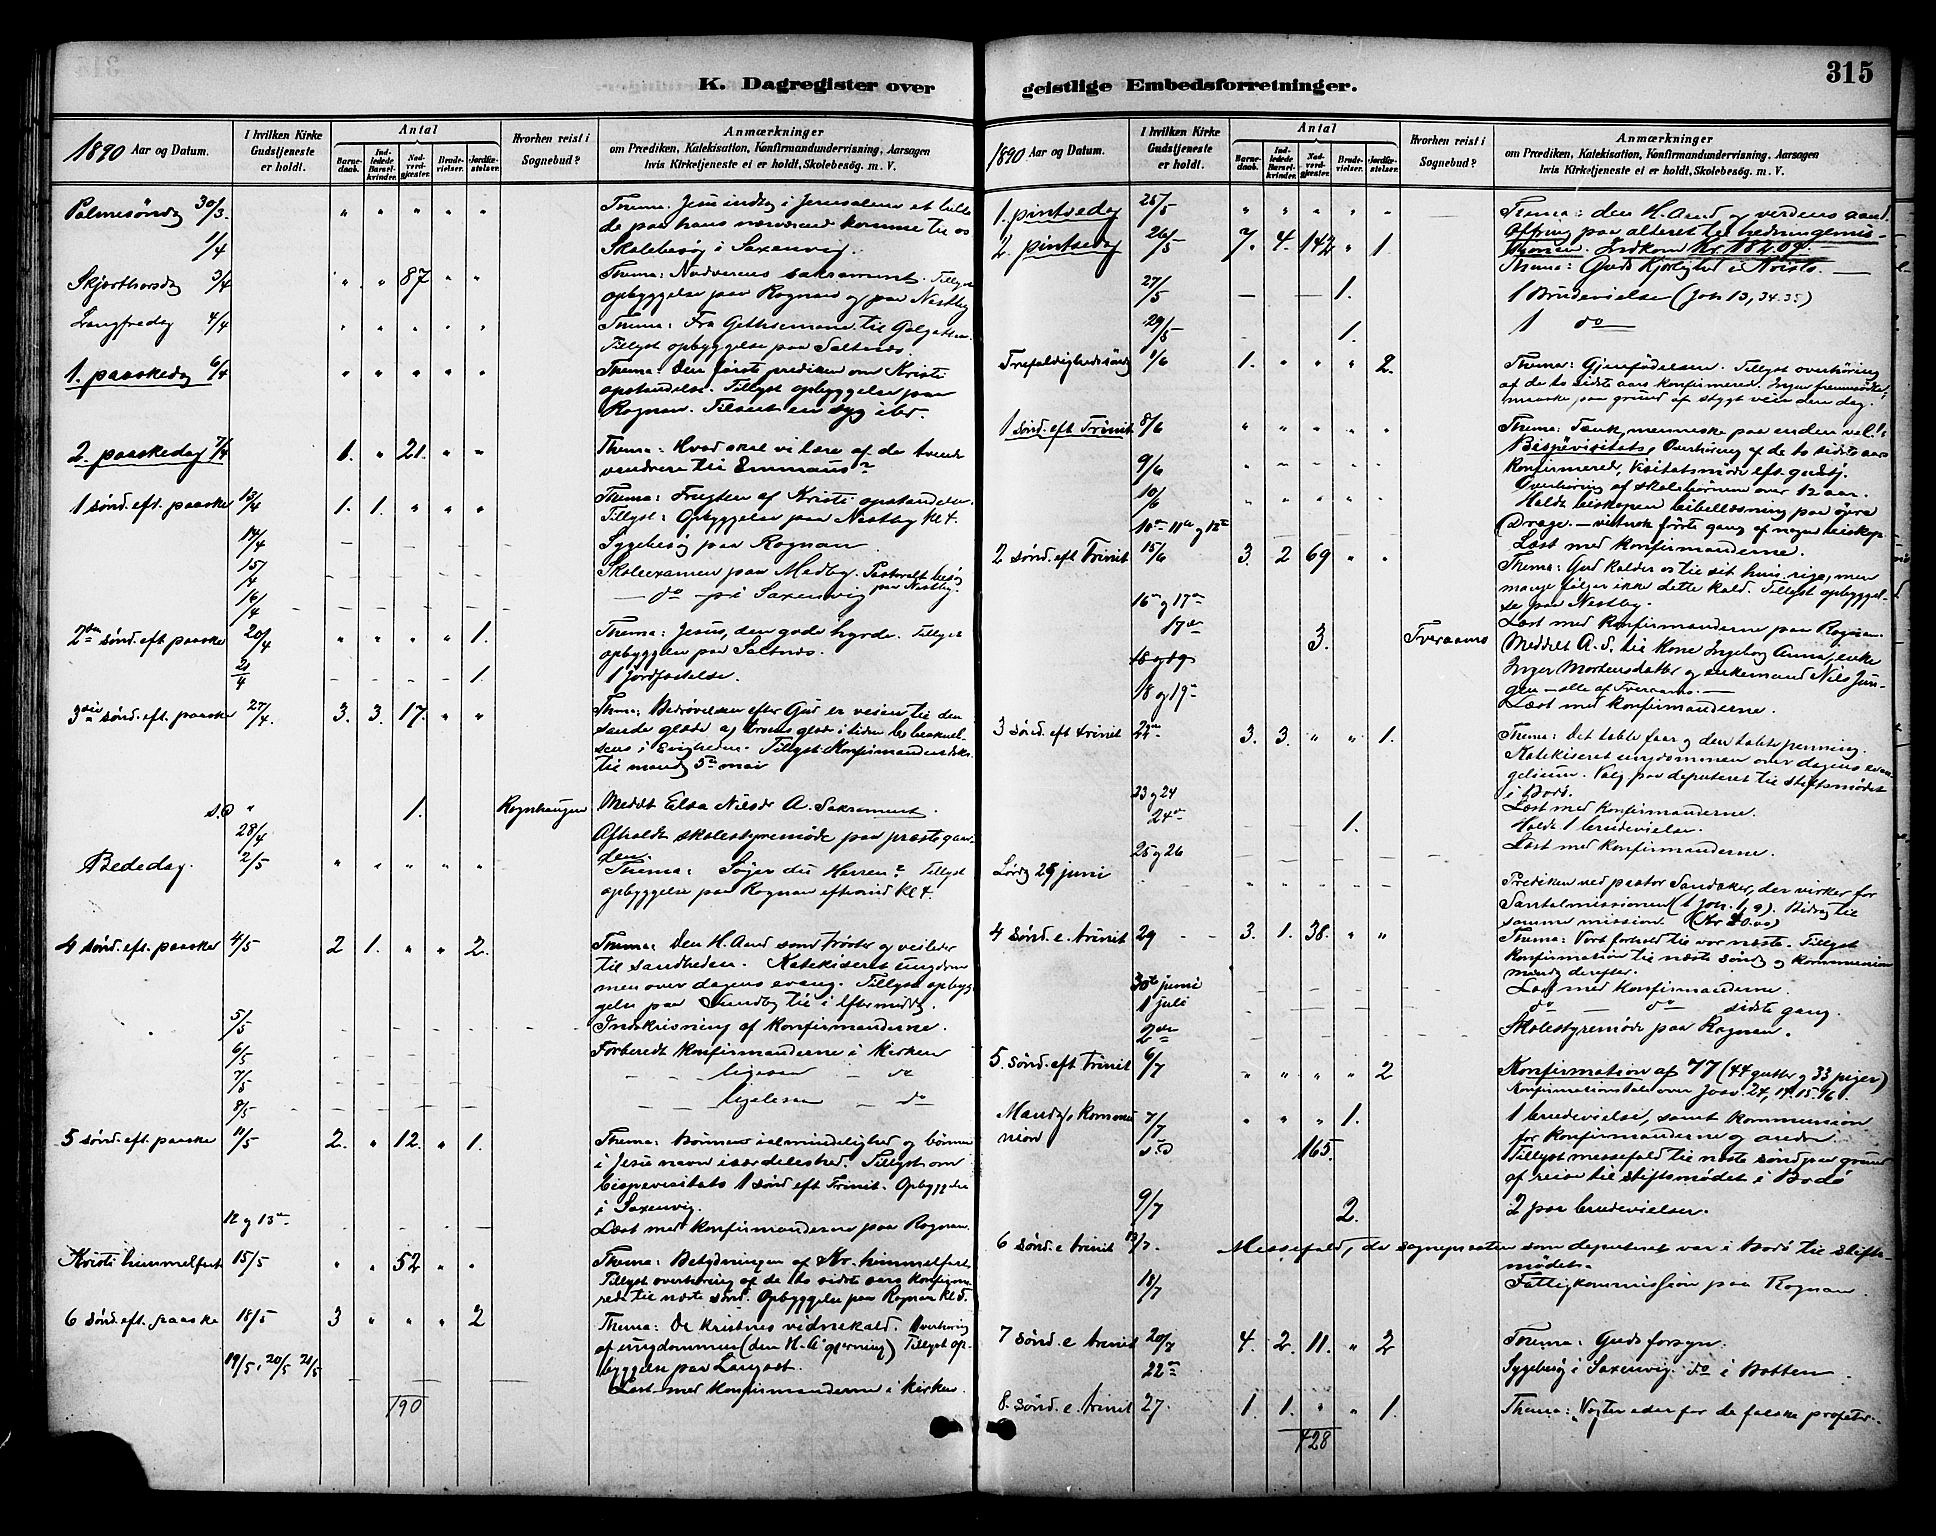 K. Dagregister over
1890 Aar og Datum.
I hvilken Kirke Gudstjeneste er holdt.
Antal
Barnedaab.
Indledede Barselkvinder.
Nadverdgjester.
Brudevielser.
Jordfæstelser.
Hvorhen reist i Sognebud?
Anmærkninger
om Prædiken, Katekisation, Konfirmandundervisning, Aarsagen
hvis Kirketjeneste ei er holdt, Skolebesøg. m. V.
Palmesöndag 30/3. " " " " " Thema: Jesu indtog i Jerusalem et billede paa hans nærværende komme til os
1/4 Skolebesög i Saxenvig.
Skjærthorsdag 3/4 " " 87 " " Thema: Nadverens sakrament. Tillyst
opbyggelse paa Rognan og paa Nestby
Langfredag 4/4 " " " " " Thema: Fra Gethsemane til Golgatha.
Tillyst opbyggelse paa Saltnes.
1. paaskedag 6/4 " " " " " Thema: Den förste prediken om Kristi
opstandelse. Tillyst opbyggelse paa
Rognan. Tilseet en syg
2. paaskedag 7/4 1. " 21. " " Thema: Hvad skal vi lære af de tvende
vandrere til Emmaus?
1 sönd. eft. paaske 13/4 1. 1. " " " Thema: Frugten af Kristi opstandelse.
Tillyst: Opbyggelse paa Nestby Kl 4.
14/4 Sygebesög paa Rognan.
15/4 Skoleexamen paa Medby. Pastoralt besög paa Nestby.
16/4 do på Saxenvig
2den sönd. eft paaske 20/4 " " " " 1. Thema: Jesus, den gode hyrde. Tillyst
opbyggelse paa Saltnes.
21/4 1. 1 Jordfæstelse.
3die sönd. eft. paaske 27/4. 3. 3. 17. " " Thema: Bedrövelsen efter Gud er veien til den
sande glæde og troens glæde i tiden
i Evigheden. Tillyst
til mandag 5te mai
s.d. " 1. Rognhaugen Meddelt Elsa Nilsdr A. Sakrament.
28/4 Afholdt skolestyremöde paa præstegaarden.
Bededag. 2/5 " " " " " Thema: Söger du Herren? Tillyst
opbyggelse paa Rognan eftermid Kl 4.
4 sönd. eft. paaske 4/5 2 1. " " 2. Thema: Den H. Aand som tröster og veileder
til sandheden. Katekiseret ungdommen over dagens evang. Tillyst opbyggelse paa Sundby til i eftermiddag.
5/5 Indskrivning af konfirmanderne.
6/5 Forberedt konfirmanderne i kirken
7/5 ligesaa do
8/5 ligeledes do
5 sönd. eft. paaske 11/5 2. " 12. " 1. Thema: Bönnens almindelighed og bönnen
i Jesu navn isærdeleshed. Tillyst om
bispevisitats 1 sönd eft Trinit. Opbyggelse
i Saxenvig.
12 og 13de Læst med konfirmanderne paa Rognan.
Kristi himmelfart 15/5 " " 52 " " Thema: Betydningen af Kr. himmelfart.
Tillyst overhöring af de to sidste aars konfirmerede til næste sönd. Opbyggelse paa Rognan Kl 5.
6 sönd. eft. paaske 18/5 3 " " " 2 Thema: De kristnes vidnekald. Overhöring
af ungdommen (den H. A. gjerning) Tillyst opbyggelse paa
19/5, 20/5 21/5 Læst med konfirmanderne i kirken.
190
geistlige Embedsforretninger. 315
1890 Aar og Datum.
I hvilken Kirke Gudstjeneste er holdt.
Antal
Barnedaab.
Indledede Barselkvinder.
Nadverdgjester.
Brudevielser.
Jordfæstelser.
Hvorhen reist i Sognebud?
Anmærkninger
om Prædiken, Katekisation, Konfirmandundervisning, Aarsagen
hvis Kirketjeneste ei er holdt, Skolebesøg. m. V.
1. pintsedag 25/5 " " " " " Thema: den H. Aand og verdens aand.
2. pintsedag 26/5 7. 4. 142 " 1. Offring paa alteret til hedningemissionen. Indkom Kr.
Thema: Guds Kjærlighed i Kristo.
27/5 1. 1 Brudevielse (Joh 13, 34.35)
29/5 1. 1 do
Trefoldighedssöndag 1/6 1. " " " 2. Thema: Gjenfödelsen. Tillyst overhöring
af de to sidste aars konfirmered. Ingen fremmödte,
maaske paa grund af stygt veir den dag.
1 sönd. eft Trinit 8/6 " " " " " Thema: Tænk, menneske paa enden vel!
Bispevisitats, Overhöring af de to sidste aars
konfirmered, Visitatsmöde eft. gudstj.
9/6 Overhöring af skolebörnene over 12 aar.
10/6 Holdt biskopen bibellæsning paa övre
10de 11te og 12te
2 sönd. eft Trinit 15/6 3. 2 69 " " Læst med konfirmanderne.
Thema: Gud kalder os til sit huus rige, men
mange fölger ikke dette kald. Tillyst opbyggelse paa Nestby.
16de og 17de Læst med konfirmanderne paa Rognan.
17de 3. Tveraaens Meddelt A. S. til kone Ingeborg Anna, enke
Inger Mortensdatter og enkemand Nils
alle af Tveraaens.
18 og 19de Læst med konfirmanderne.
3 sönd. eft trinit 22de 3. 3. " " 1. Thema: Det tabte faar og den tabte penning.
Katekiseret ungdommen over dagens evangelium. Valg paa deputeret til stiftsmödet
i Bodö.
23 og 24 Læst med konfirmanderne.
24de 1. Holdt 1 brudevielse.
25 og 26 Læst med konfirmanderne.
Lördag 28 juni " " " " " Prediken ved pastor Sandaker, der virker for
Santalmissionen (1 Joh. 1, 9). Bidrag til
samme mission.
4 sönd. e. trinit 29 3. 1. 38. " " Thema: Vort forhold til vor næste. Tillyst
konfirmation til næste söndag og kommunion
mandag derefter.
30te juni Læst med konfirmanderne.
1 juli do do sidste gang.
2den Skolestyremöde paa Rognan.
5. sönd. eft trinit 6/7 " " " " 2 Konfirmation af 77 (44 gutter og 33 piger)
Konfirmationstale over Josv. 24, 14.15.16
Mandags kommunion 7/7 " " " 1. 1 brudevielse, samt kommunion
for konfirmanderne og andre.
s.D 165. Tillyst messefald til næste sönd paa grund
af reise til stiftsmödet i Bodö
9/7 2. 2 par brudevielser.
6 sönd. e trinit 13/7. Messefald, da sognepræsten som deputeret var i Bodö til stiftsmödet.
18/7 Fattigkommission paa Rognan.
7 sönd. e trinit 20/7 4. 2. 11. " 2 Thema: Guds forsyn.
22de Sygebesög i Saxenvig. do i Botten.
8. sönd. e. trinit 27. 1. 1. " " 1. Thema: Vogter eder for de falske profeter.
428